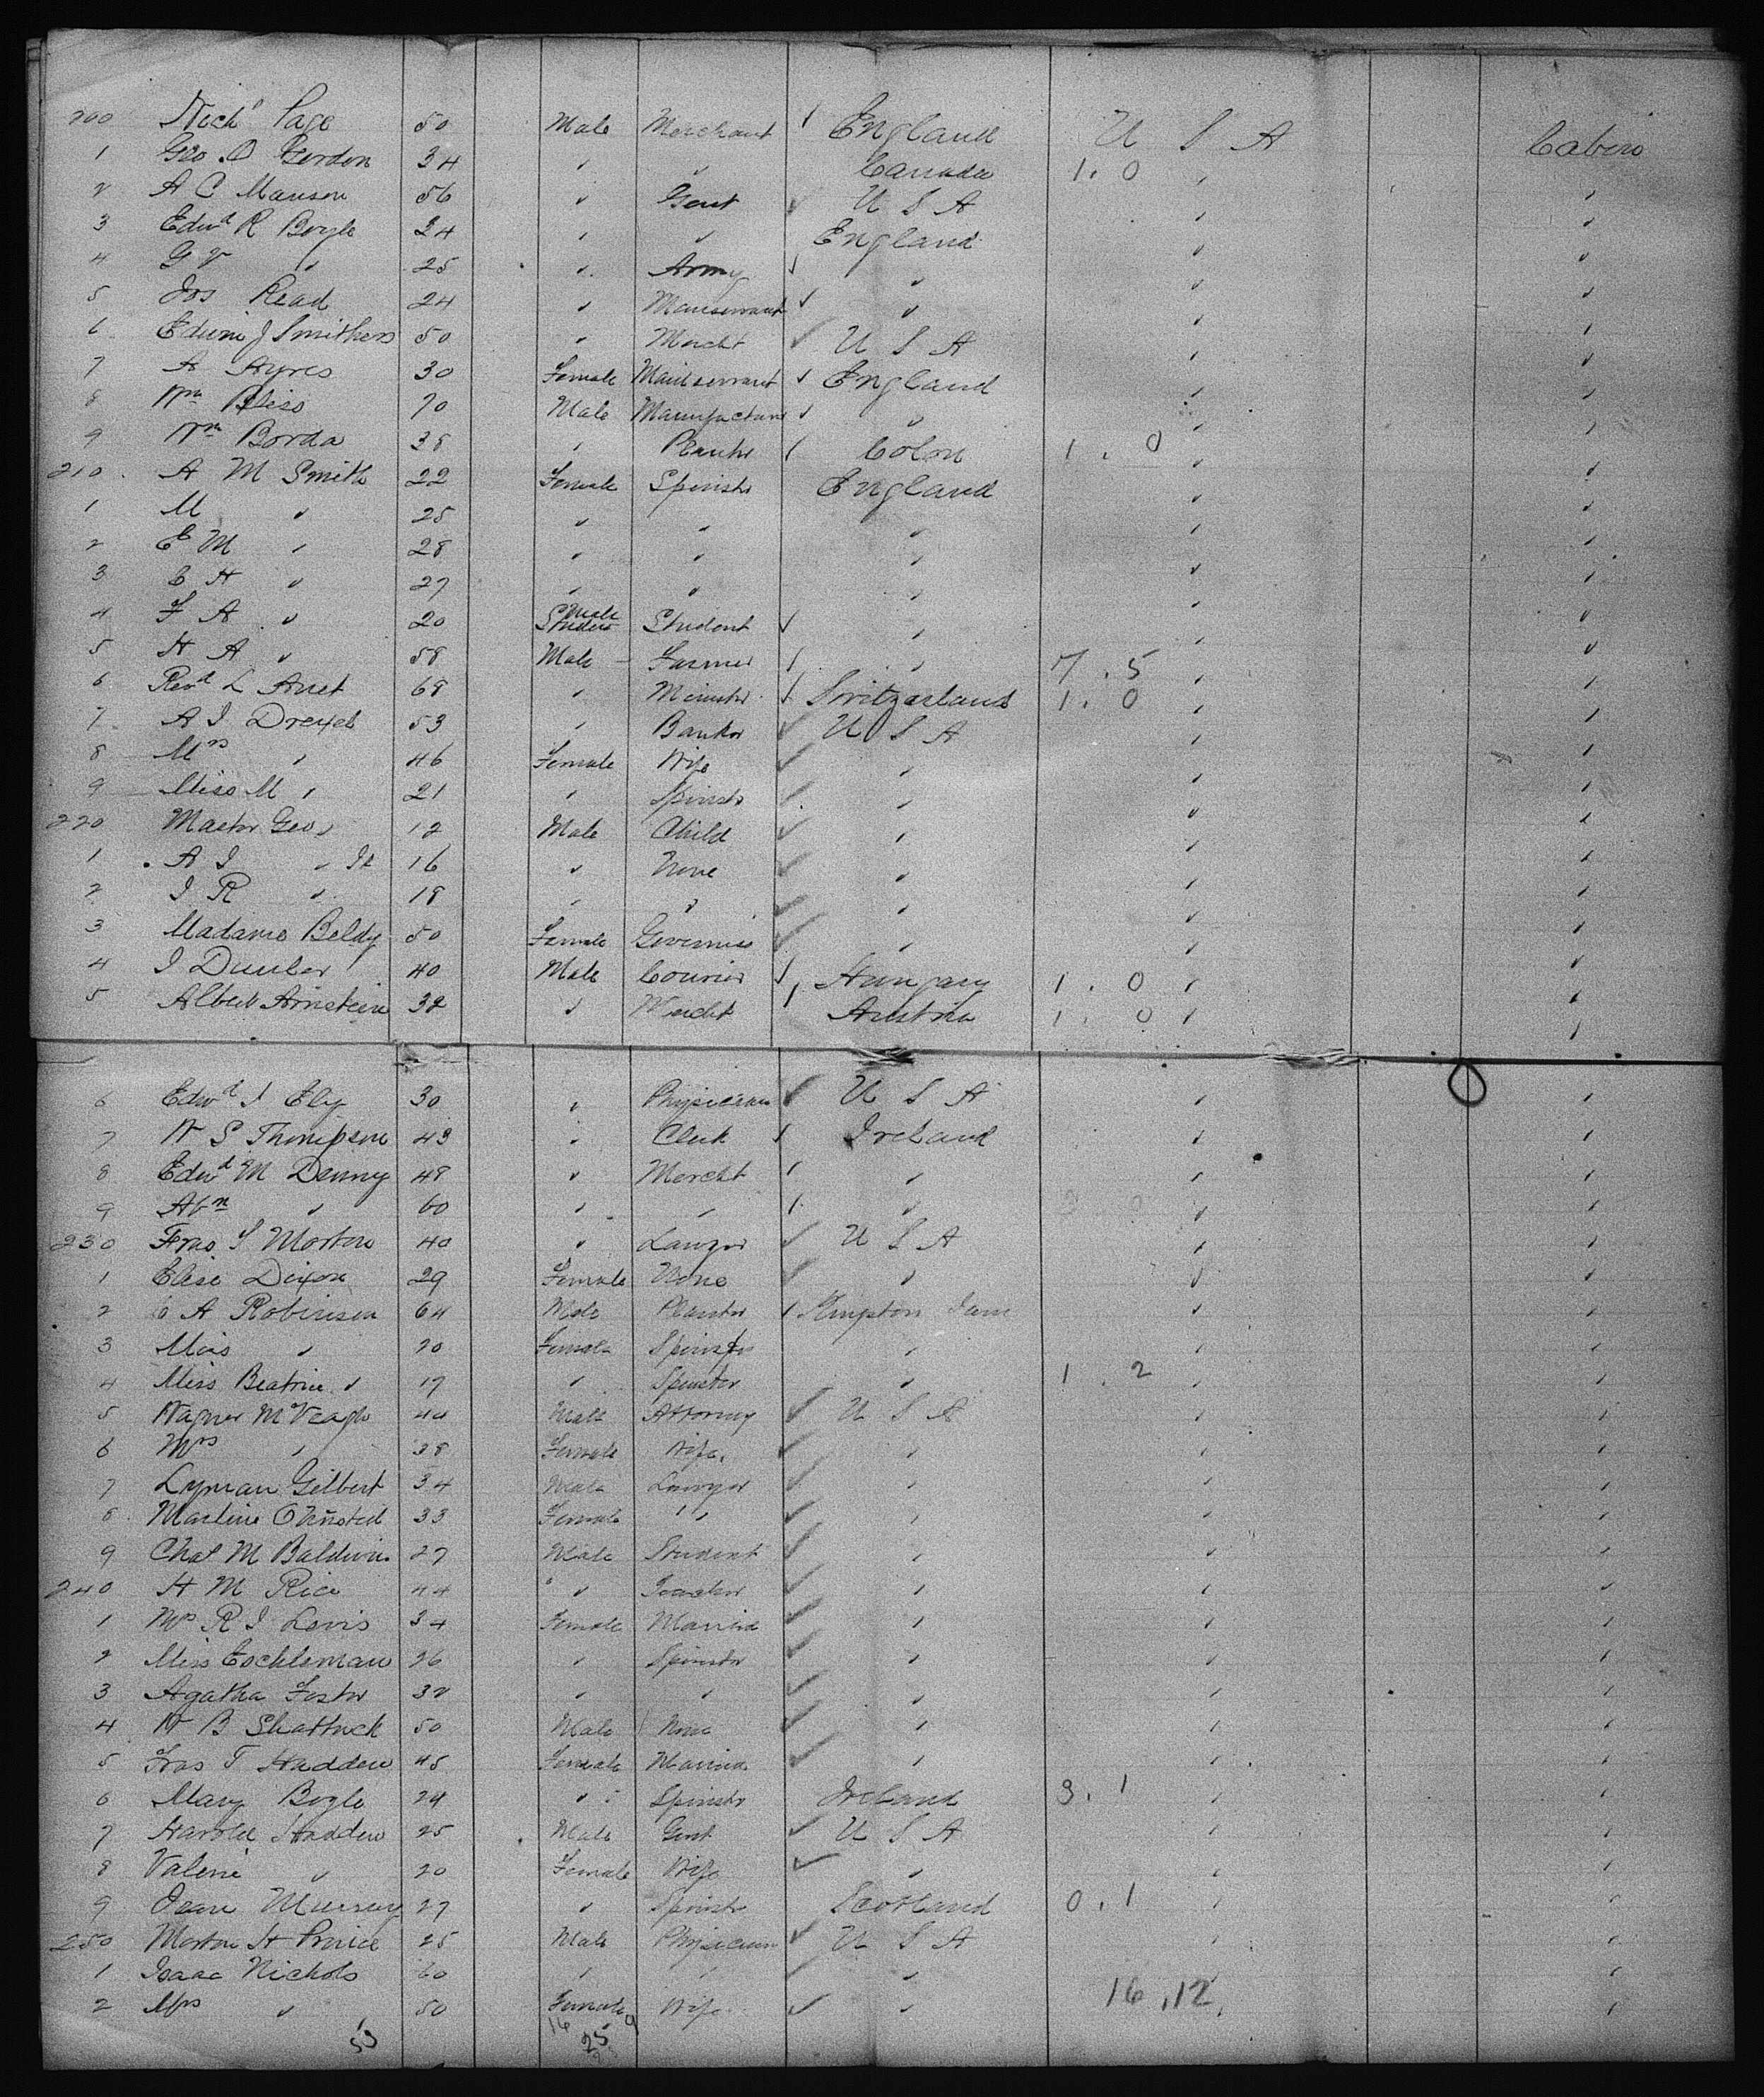 200 Nich^s Page 50 Male Merchant England U S A Cabin
1 Geo. D Gordon 34 " " Canada 1. 0 " "
2 A C Manson 56 " Gent U S A " "
3 Edw^d R Boyle 24 " " England " "
4 G V " 25 " Army " " "
5 Jos Read 24 " Manservant " " "
6 Edwin J Smithers 50 " Mercht U S A " "
7 A Ayres 30 Female Maidservant England " "
8 W^m Bliss 70 Male Manufacturer " " "
9 W^m Borda 38 " Planter Colon 1. 0 " "
210 A M Smith 22 Female Spinster England " "
1 M " 25 " " " " "
2 E M " 28 " " " " "
3 C H " 27 " " " " "
4 F A " 20 Male Student " " "
5 H A " 58 Male Farmer " 7. 5 " "
6 Rev^d L Anet 68 " Minister Switzerland 1. 0 " "
7 A J Drexel 53 " Banker U S A " "
8 M^rs " 46 Female Wife " " "
9 Miss M " 21 " Spinster " " "
220 Master Geo " 12 Male Child " " "
1 A J " Jr 16 " None " " "
2 J R " 18 " " " " "
3 Madame Beldy 50 Female Governess " " "
4 J Dunber 40 Male Courier Hungary 1. 0 " "
5 Albert Arnstein 32 " Mercht Austria 1. 0 " "
6 Edw^d J Ely 30 " Physician U S A " "
7 W S Thompson 43 " Clerk Ireland " "
8 Edw^d M Denny 48 " Mercht " " "
9 Ab^m " 60 " " " " "
230 Fras. S Morton 40 " Lawyer U S A " "
1 Elise Dixon 29 Female None " " "
2 C A Robinson 64 Male Planter Kingston Jam " "
3 Miss " 20 Female Spinster " " "
4 Miss Beatrice " 17 " Spinster " 1. 2 " "
5 Wagner McVeagh 44 Male Attorney U S A " "
6 M^rs " 38 Female Wife " " "
7 Lyman Gilbert 34 Male Lawyer " " "
8 Marline Olmsted 33 Female " " " "
9 Chas M Baldwin 27 Male Student " " "
240 H M Rice 44 " Teacher " " "
1 M^rs R J Levis 34 Female Married " " "
2 Miss Eschleman 26 " Spinster " " "
3 Agatha Foster 32 " " " " "
4 W B Shattuck 50 Male None " " "
5 Fras T Hadden 45 Female Married " " "
6 Mary Boyle 24 " Spinster Ireland 3. 1 " "
7 Harold Hadden 25 Male Gent U S A " "
8 Valerie " 20 Female Wife " " "
9 Jean Murray 27 " Spinster Scotland 0. 1 " "
250 Morton H Prince 25 Male Physician U S A " "
1 Isaac Nichols 60 " " " " "
2 Mrs " 50 Female Wife " 16,12 "
53 16 9
25